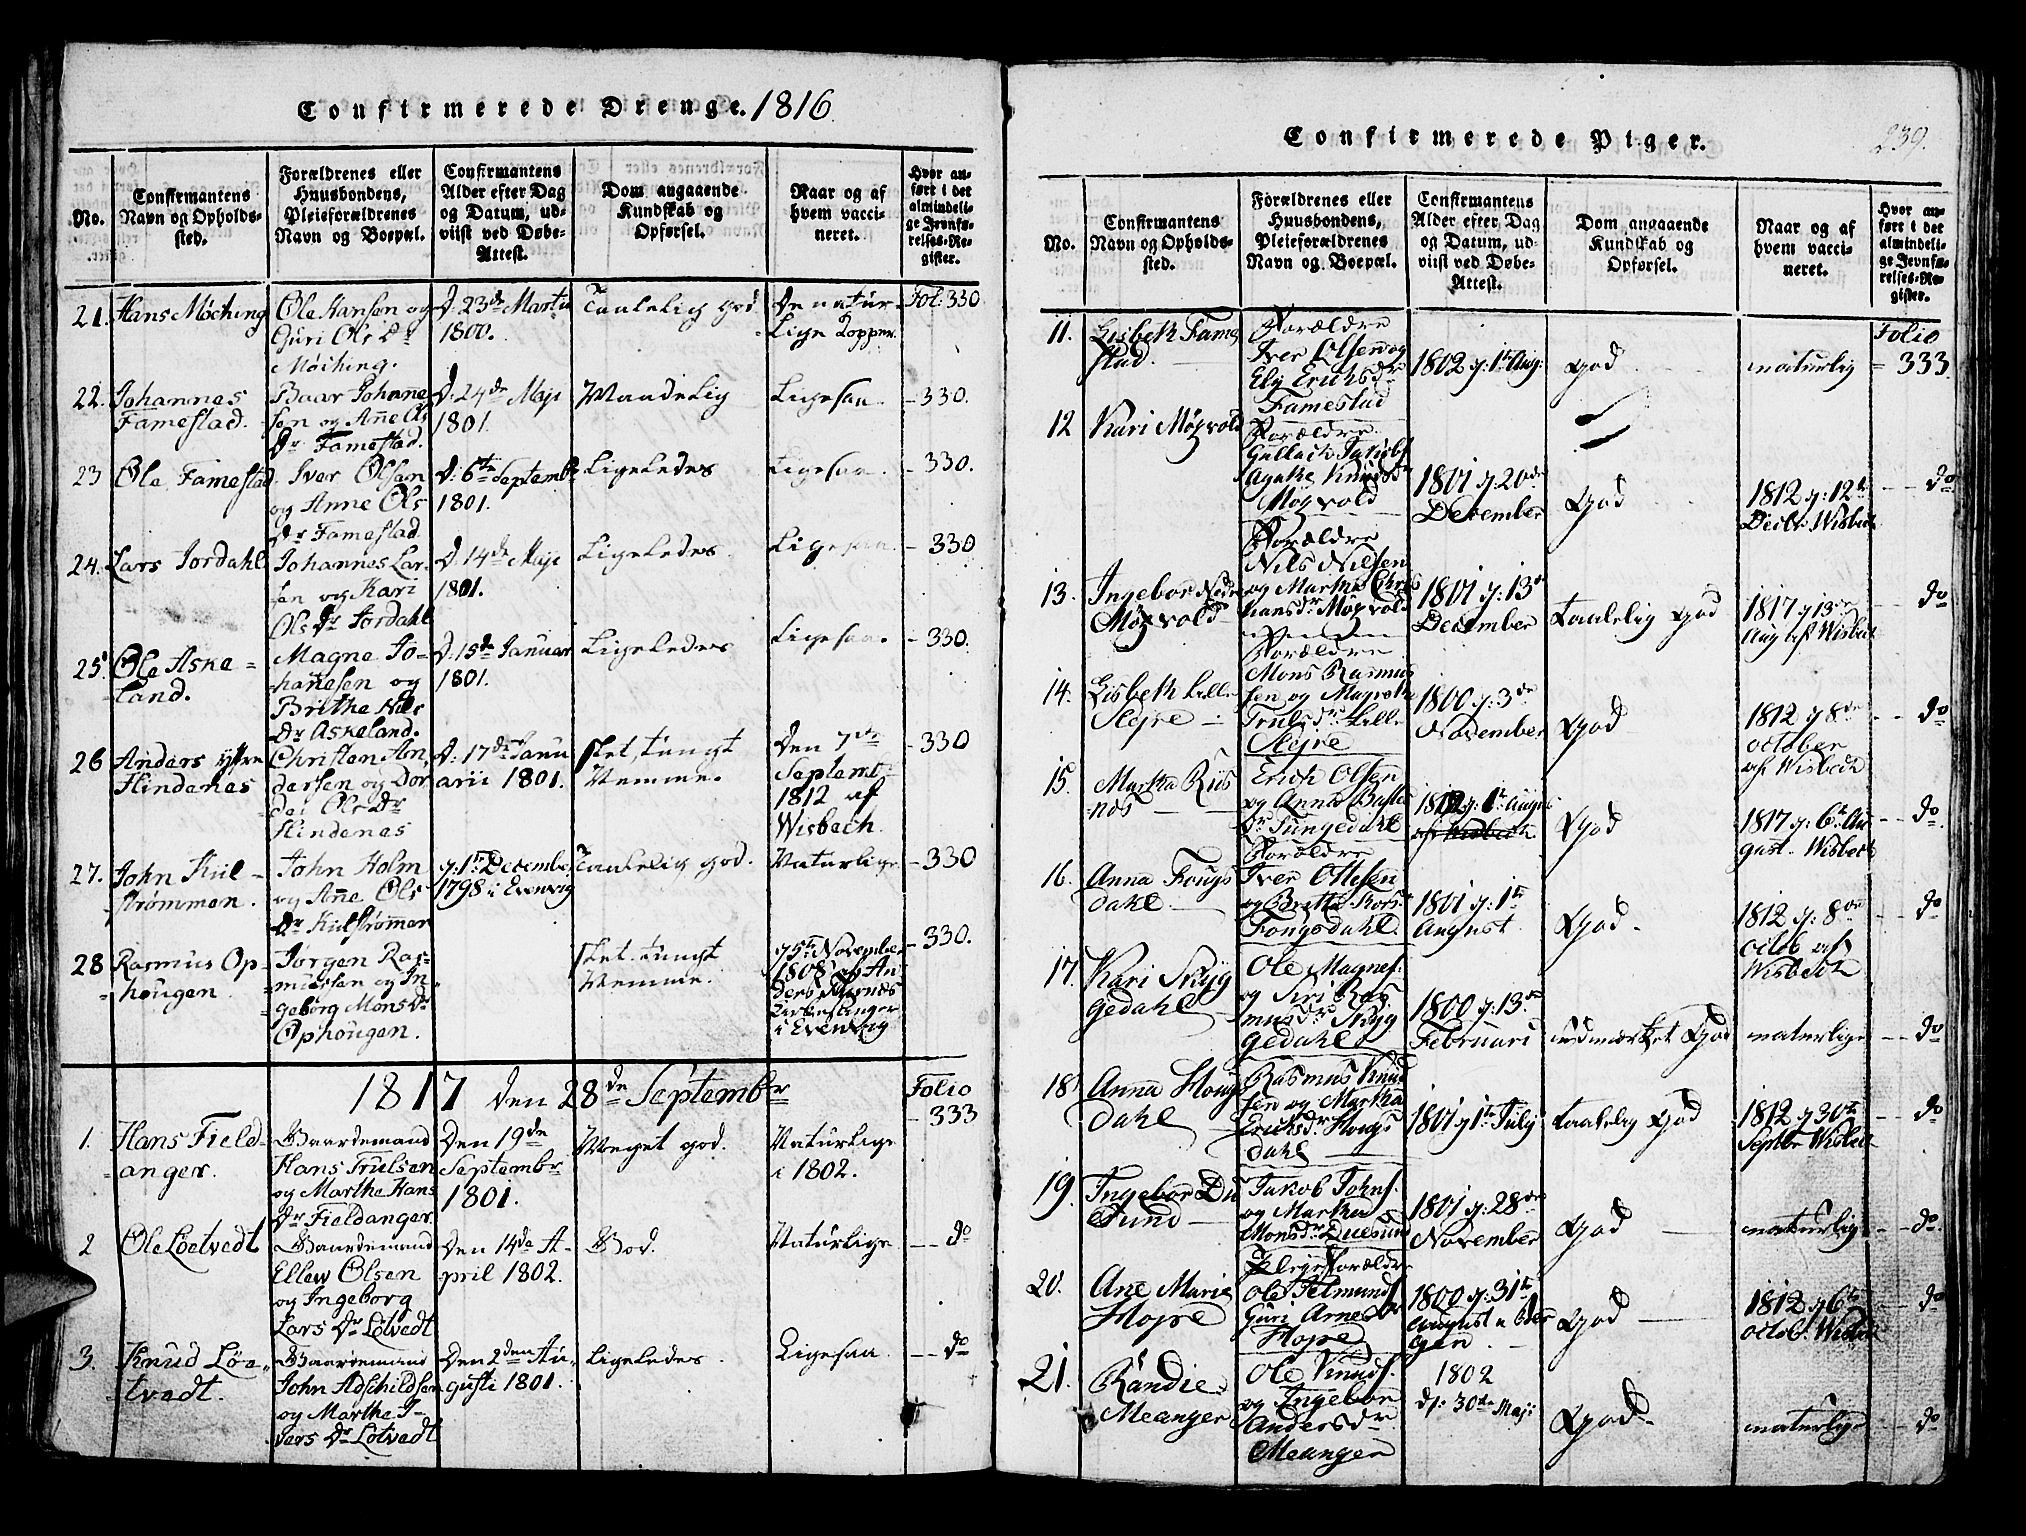 Confirmerede Drenge. 1816
No.
Confirmantens
Navn og Opholds-
sted.
Forældrenes eller
Huusbondens,
Pleieforældrenes
Navn og Boepæl.
Confirmantens
Alder efter Dag
og Datum, ud-
viist ved Døbe-
Attest.
Dom angaaende
Kundskab og
Opførsel.
Naar og af
hvem vacci-
neret.
Hvor an-
ført i det
almindeli-
ge Jevnfø-
relses-Re-
gister.
21. Hans Møching
Ole Hansen og
Guri Ols Dr
Møching.
D: 23de Martii
1800.
Taalelig god
De natur-
lige Kopper.
Fol: 330
22. Johannes
Famestad.
Baar Johanne
sen og Anne Ols
Dr Famestad.
D: 24de Maji
1801.
Maadelig
Ligesaa.
- 330.
23 Ole Famestad.
Iver Olsen
og Anne Ols
Dr Famestad
D: 6te Septembr
1801.
Ligeledes
Ligesaa.
- 330.
24. Lars Jordahl
Johannes Lar-
sen og Kari
Ols Dr Jordahl
D. 14de Maji
1801.
Ligeledes.
Ligesaa.
- 330
25. Ole Aske-
land.
Magne Jo-
hanesen og
Brithe Nils
Dr Askeland.
D. 15de Januar
1801.
Ligeledes
Ligesaa.
- 330.
26 Anders ytre
Hindenes
Christen An,
dersen og Dor
dei Ols Dr
Hindenes
D: 17de Janu
arii 1801.
slet, tungt
Nemme.
Den 7de
Septemb.
1812 af
Wisbech.
- 330
27. John Kiil-
strømmen.
John Holm
og Anne Ols
Dr Kiilstrømmen
g: 1te December
1798 i Evenvig
Taalelig god.
Naturlige
- 330
28 Rasmus Op-
hougen.
Jørgen Ras-
mussen og In,
geborg Mons Dr
Ophougen.
slet tungt
Nemme.
g 5te November
1808 af An
ders
Kirkesanger
i Evenvig
- 330.
1817 den 28de Septembr
Folio
1. Hans Field-
anger.
Gaardemand
Hans Trulsen
og Marthe Hans
Dr Fieldanger.
Den 19de
Septembr
1801.
Meget god.
Naturlige
i 1802.
- 333
2 Ole Løetvedt
Gaardemand
Ellew Olsen
og Ingeborg
Lars Dr Lötvedt
Den 14de A-
pril 1802.
God.
Naturlige
- do
3. Knud Løe-
tvedt.
Gaardemand
John Adschildsen
og Marthe I-
vers Dr Lötvedt
Den 2den Au,
gusti 1801.
Ligeledes.
Ligesaa.
- do
Confirmerede Piger.
239.
No.
Confirmantens
Navn og Opholds-
sted.
Forældrenes eller
Huusbondens,
Pleieforældrenes
Navn og Boepæl.
Confirmantens
Alder efter Dag
og Datum, ud-
viist ved Døbe-
Attest.
Dom angaaende
Kundskab og
Opførsel.
Naar og af
hvem vacci-
neret.
Hvor an-
ført i det
almindeli-
ge Jevnfø-
relses-Re-
gister.
11. Lisbeth Fame
stad.
Forældre
Iver Olsen og
Ely Erichsdr
Famestad
1802 g: 1te Aug:
God
naturlig
Folio
= 333
12 Kari Møgvold
Forældre.
Gullach Jakobs
Agathe Knudsdr
Møgvold
1801 g: 20de
December
God
1812 g: 12te
Decbr Wisbech
- do
13. Ingebor Nedre
Møgvold
Forældre
Nils Nilsen
og Martha Chri
hansdr Møgvold
1801 g: 13de
December
taalelig god
1817 g 13de
Aug af Wisbech
- do
14. Lisbeth Lille
Slejre
Forældre
Mons Rasmus
sen og Magrethe
Trulsdr Lille
Slejre
1800 g: 3de
November
God
1812 g 8de
october
af Wisbech
- do
15. Martha Riis
næs
Erich Olsen
og Anna
dr Tungedahl
g: 1te August
God
1817 g: 6te Au
gust. Wisbech
- do
16. Anna Fougs
dahl
Forældre
Iver Ottesen
og Britta
Fougsdahl.
1801 g: 1te
August
God.
1812 g: 8de
octob af
Wisbech
- do
17. Kari Skyg
gedahl
Ole Magnes.
og Siri Ras
musdr Skyg
gedahl
1800 g: 13de
Februari
udmærket God
naturlige
- do
18 Anna Hougs
dahl
Rasmus Knud
sen og Martha
Erichsdr Hougs
dahl
1801 g 1te July
taalelig God
1812 g 30te
Septbr Wisbech
- do
19. Ingebor Du
Sund
Jakob Johns.
og Martha
Monsdr Duesund
1801 g: 28de
November
God
naturlig
- do
20. Ane Marie
Hope
Plejeforældre
Ole Helmunds.
Guri Arnesdr
Hope
1800 g: 31te
August i Ber
gen.
God
1812 g 6te
octob. Wisbech
- do
21. Randie
Meanger
Ole Knuds.
og Ingebor
Andersdr
Meanger
1802
d: 30te Maji
God.
naturlige
- do